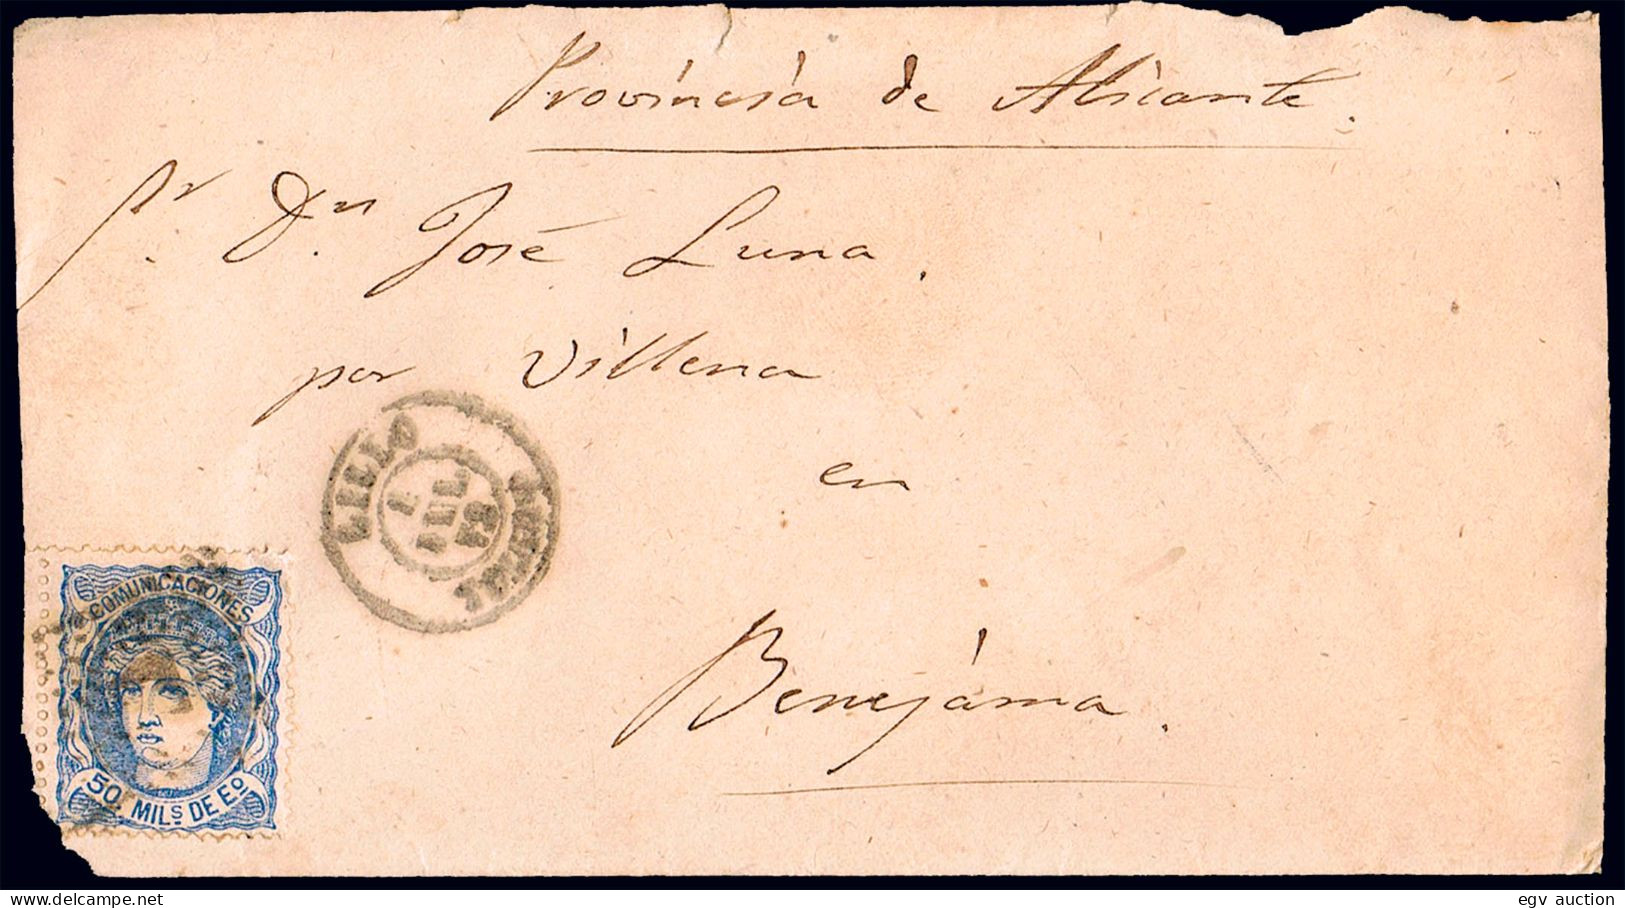 Provincia de Alicante.
Sr. Dn. José Luna.
por Villena
en
Benejáma.
LILLO
1
JUL.
72
COMUNICACIONES
50 MILS DE EO
egv auction